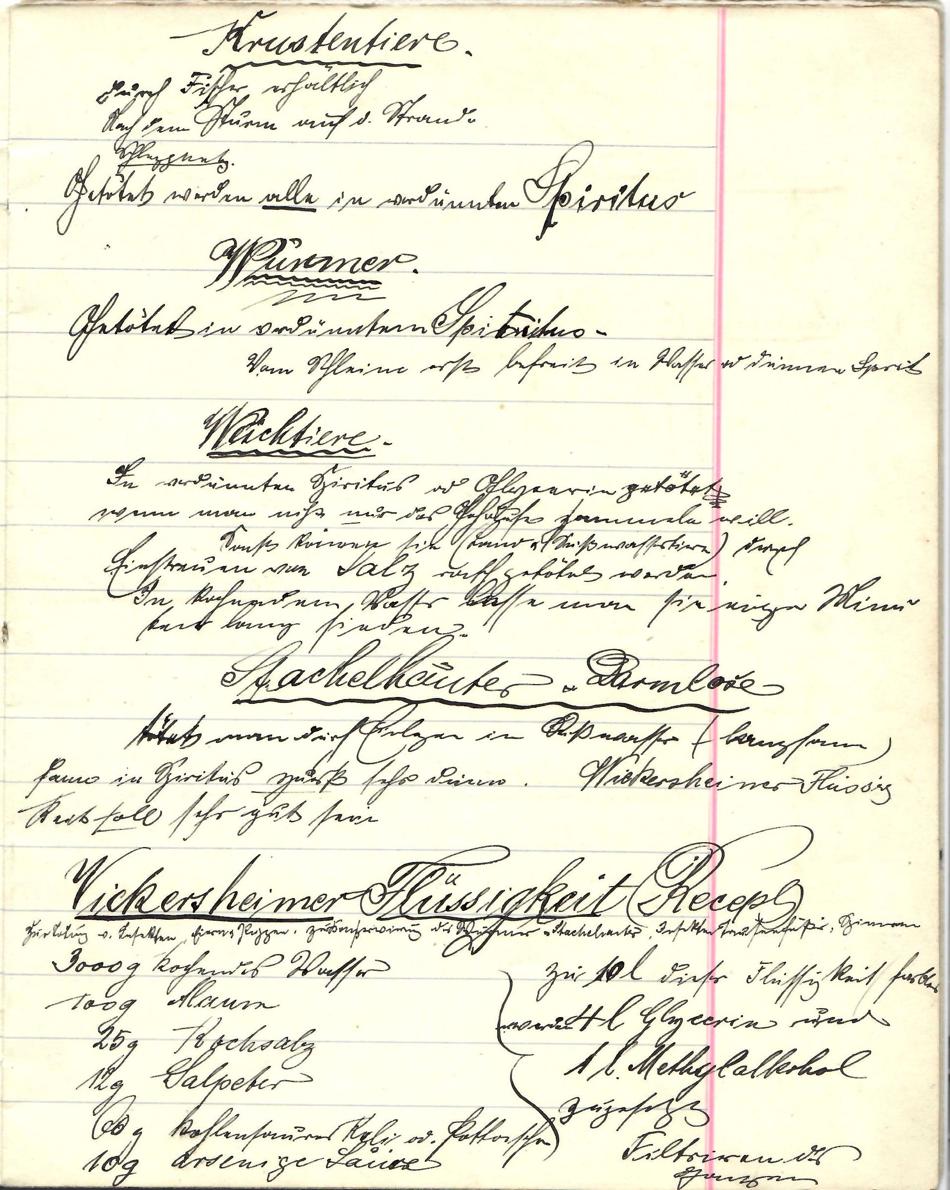 Krustentiere.
Durch Fischer erhältlich
Nach dem Sturm auf d. Strande
Schleppnetz.
Getötet werden alle in verdünntem Spiritus
Würmer.
Getötet in verdünntem Spiritus -
Vom Schleim erst befreit in Wasser od dünnen Sprit
Weichtiere.
In verdünnten Spiritus od Glyzerin getötet
wenn man nicht nur das Gehäuse sammeln will.
Sonst können sie (Land u. Süßwassertiere) durch
Einstreuen von Salz rasch getötet werden.
In kochendem Wasser lasse man sie einige Minu
ten lang sieden.
Stachelhäuter u. Darmlose
tötet man durch Einlegen in Süßwasser (langsam)
dann in Spiritus zuerst sehr dünn. Wickersheimer Flüssig
keit soll sehr gut sein
Wickersheimer Flüssigkeit (Recept)
Zur Tötung v. Insekten, Eiern, Puppen, zur Konservierung der Würmer, Stachelhäuter, Insekten, Tausendfüßer, Spinnen
3000g kochendes Wasser
100g Alaun
25g Kochsalz
12g Salpeter
60g kohlensaures Kali od. Pottasche
10g arsenige Säure
zu 10 l dieser Flüssigkeit farblos
werden 4 l Glycerin und
1 l. Methylalkohol
zugesetzt
Filtriren des
Ganzen